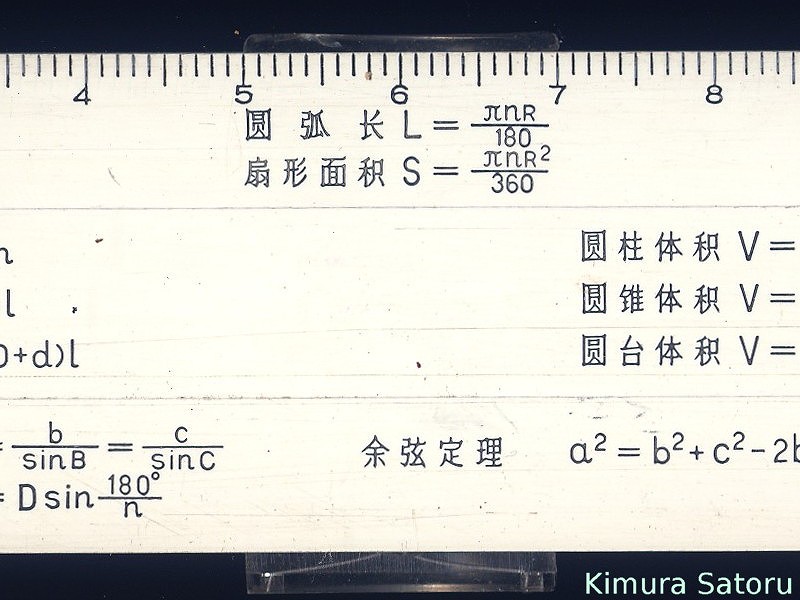 4 5 6 7 8
圆弧长 L = πnR/180
扇形面积 S = πnR²/360
n
l
圆柱体积 V =
圆锥体积 V =
D+d)l
圆台体积 V =
= b/sinB = c/sinC
余弦定理 a² = b²+c²-2b
= D sin 180°/n
Kimura Satoru